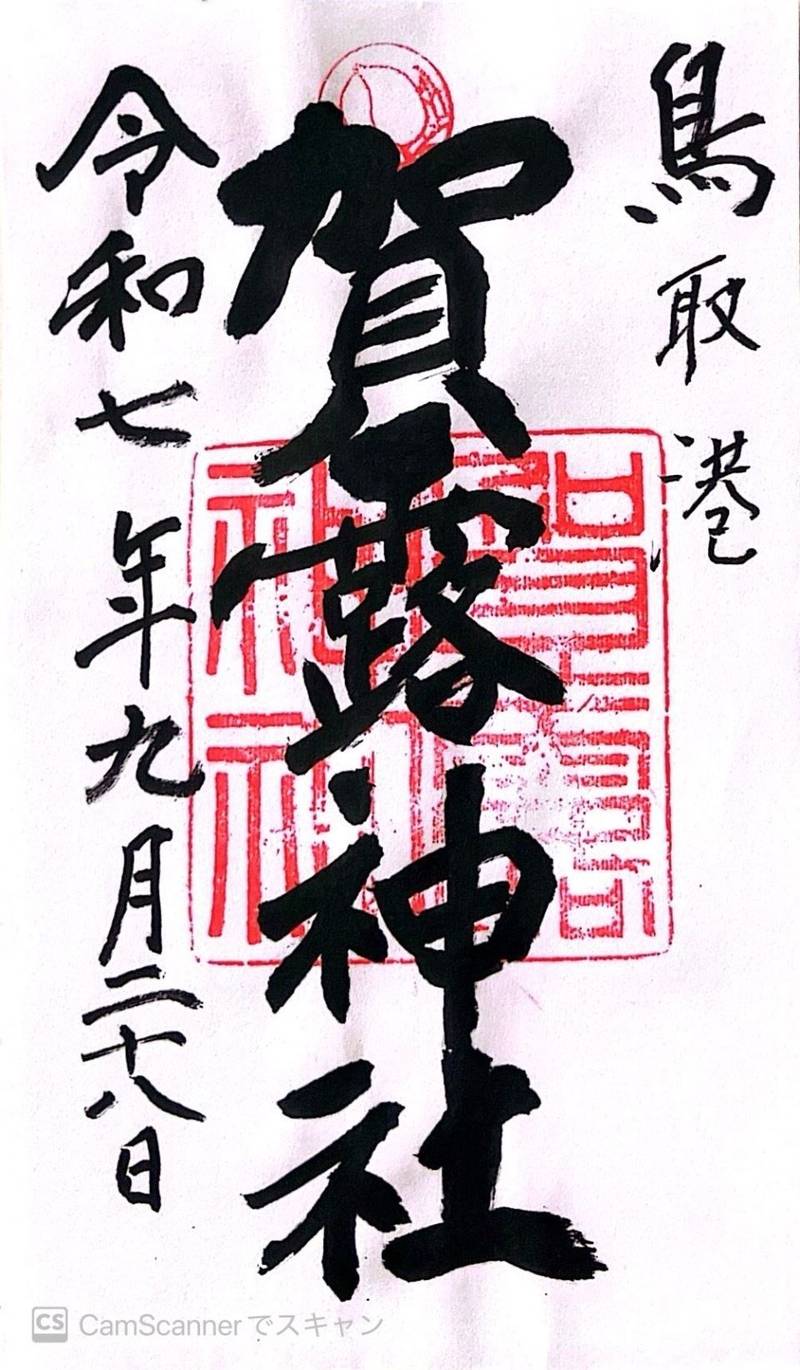 鳥取港
賀露神社
令和七年九月二十八日
賀露
神社
CS CamScannerでスキャン